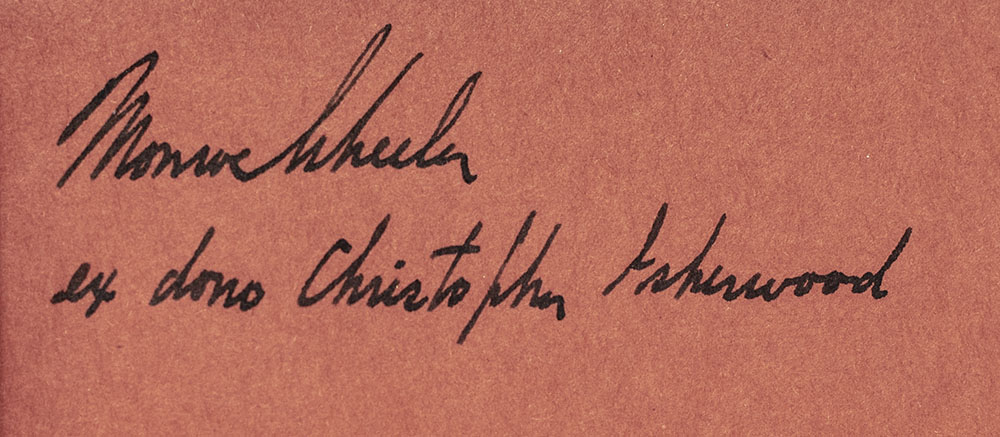 Monroe Wheeler
ex dono Christopher Isherwood